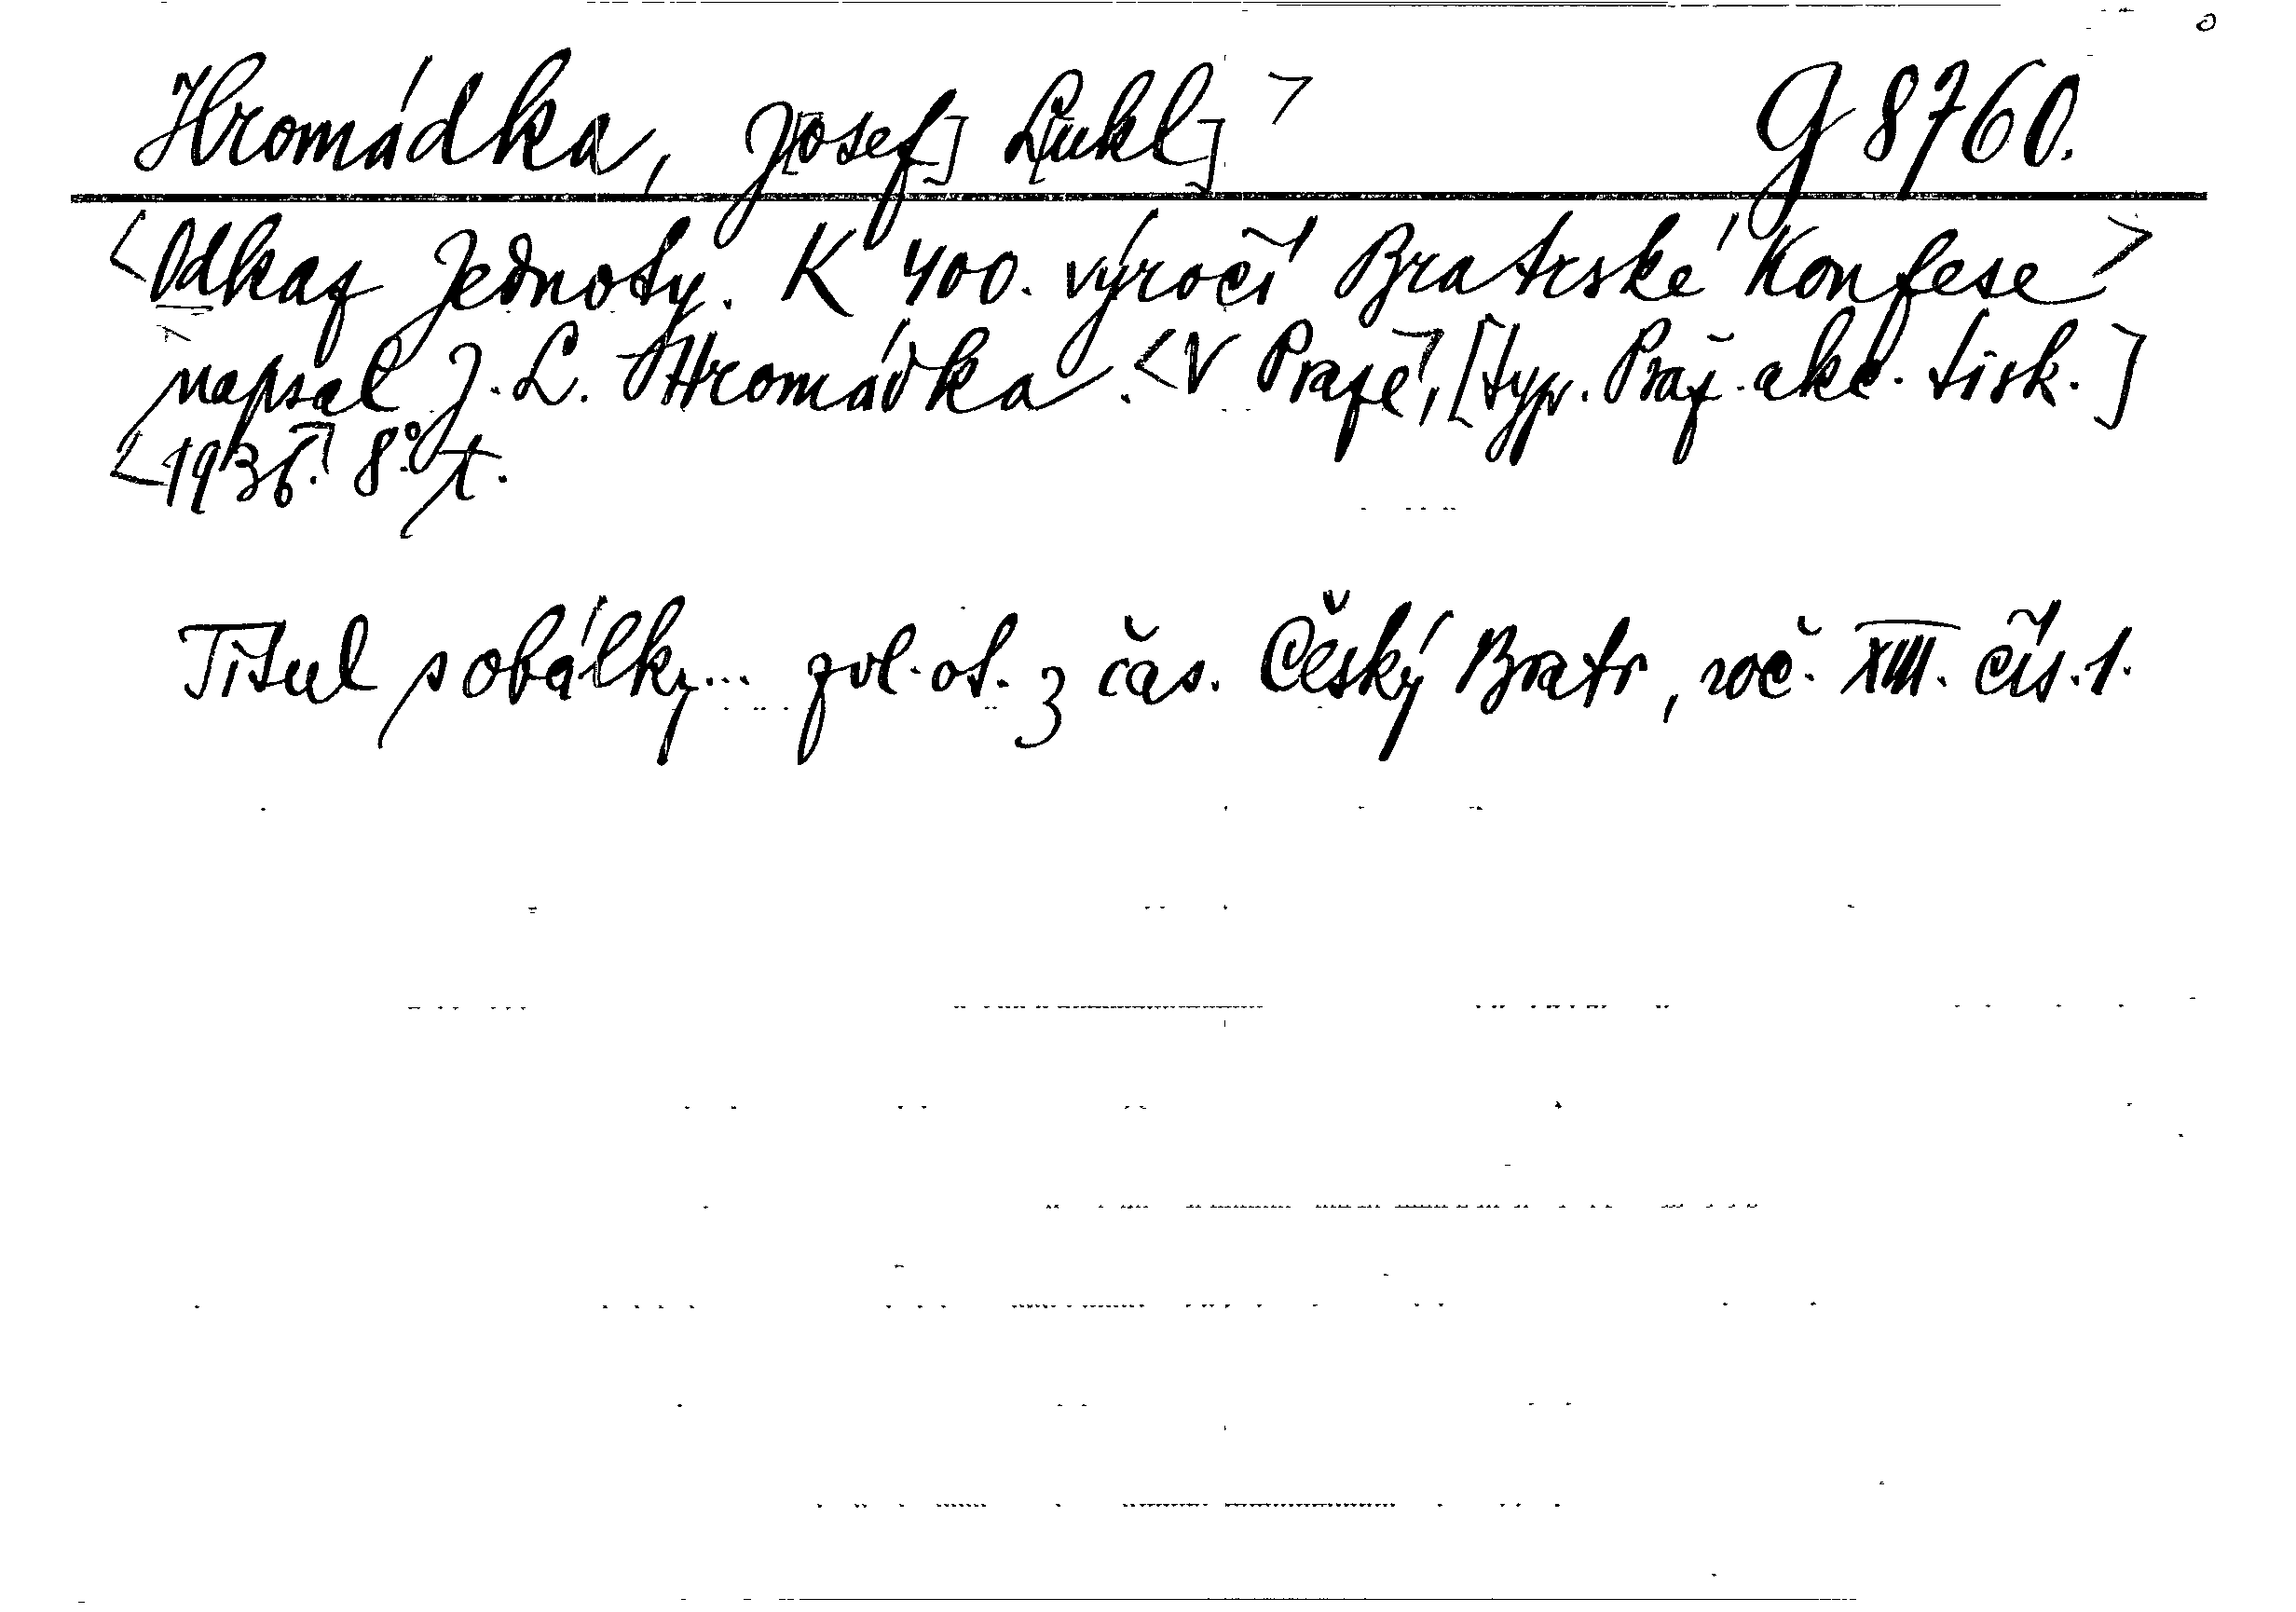 Hromádka, J[osef] L[ukl] > G 8760.
<Odkaz Jednoty. K 400. výročí Bratrské Konfese>
napsal J. L. Hromádka. <V Praze>, [typ. Praž. akc. tisk.]
<1936.> 8° t.
Titul s obálky... zvl. ot. z čas. Český Bratr, roč. XIII. čís. 1.